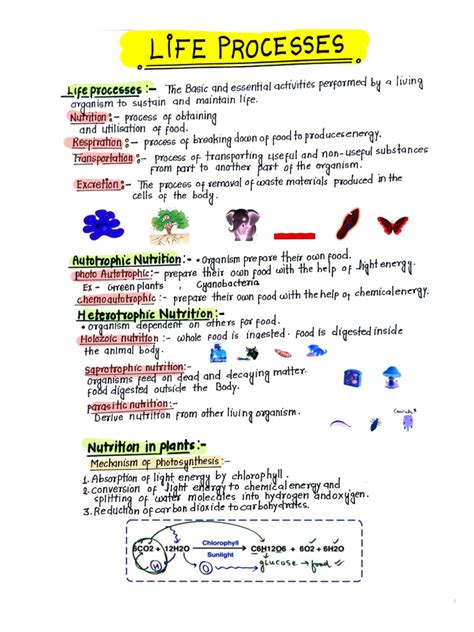 LIFE PROCESSES
Life processes :- The Basic and essential activities performed by a living
organism to sustain and maintain life.
Nutrition :- process of obtaining
and utilisation of food.
Respiration :- process of breaking down of food to produce energy.
Transportation :- process of transporting useful and non-useful substances
from part to another part of the organism.
Excretion :- The process of removal of waste materials produced in the
cells of the body.
Autotrophic Nutrition :- • Organism prepare their own food.
photo Autotrophic :- prepare their own food with the help of light energy.
Ex - Green plants, Cyanobacteria
chemoautotrophic :- prepare their own food with the help of chemical energy.
Heterotrophic Nutrition :-
• organism dependent on others for food.
Holozoic nutrition :- whole food is ingested. food is digested inside
the animal body.
saprotrophic nutrition :-
Organisms feed on dead and decaying matter.
food digested outside the Body.
parasitic nutrition :-
Derive nutrition from other living organism.
Nutrition in plants :-
Mechanism of photosynthesis :-
1. Absorption of light energy by chlorophyll.
2. conversion of light energy to chemical energy and
splitting of water molecules into hydrogen and oxygen.
3. Reduction of carbon dioxide to carbohydrates.
6CO2 + 12H2O Chlorophyll Sunlight C6H12O6 + 6O2 + 6H2O
H O glucose → food